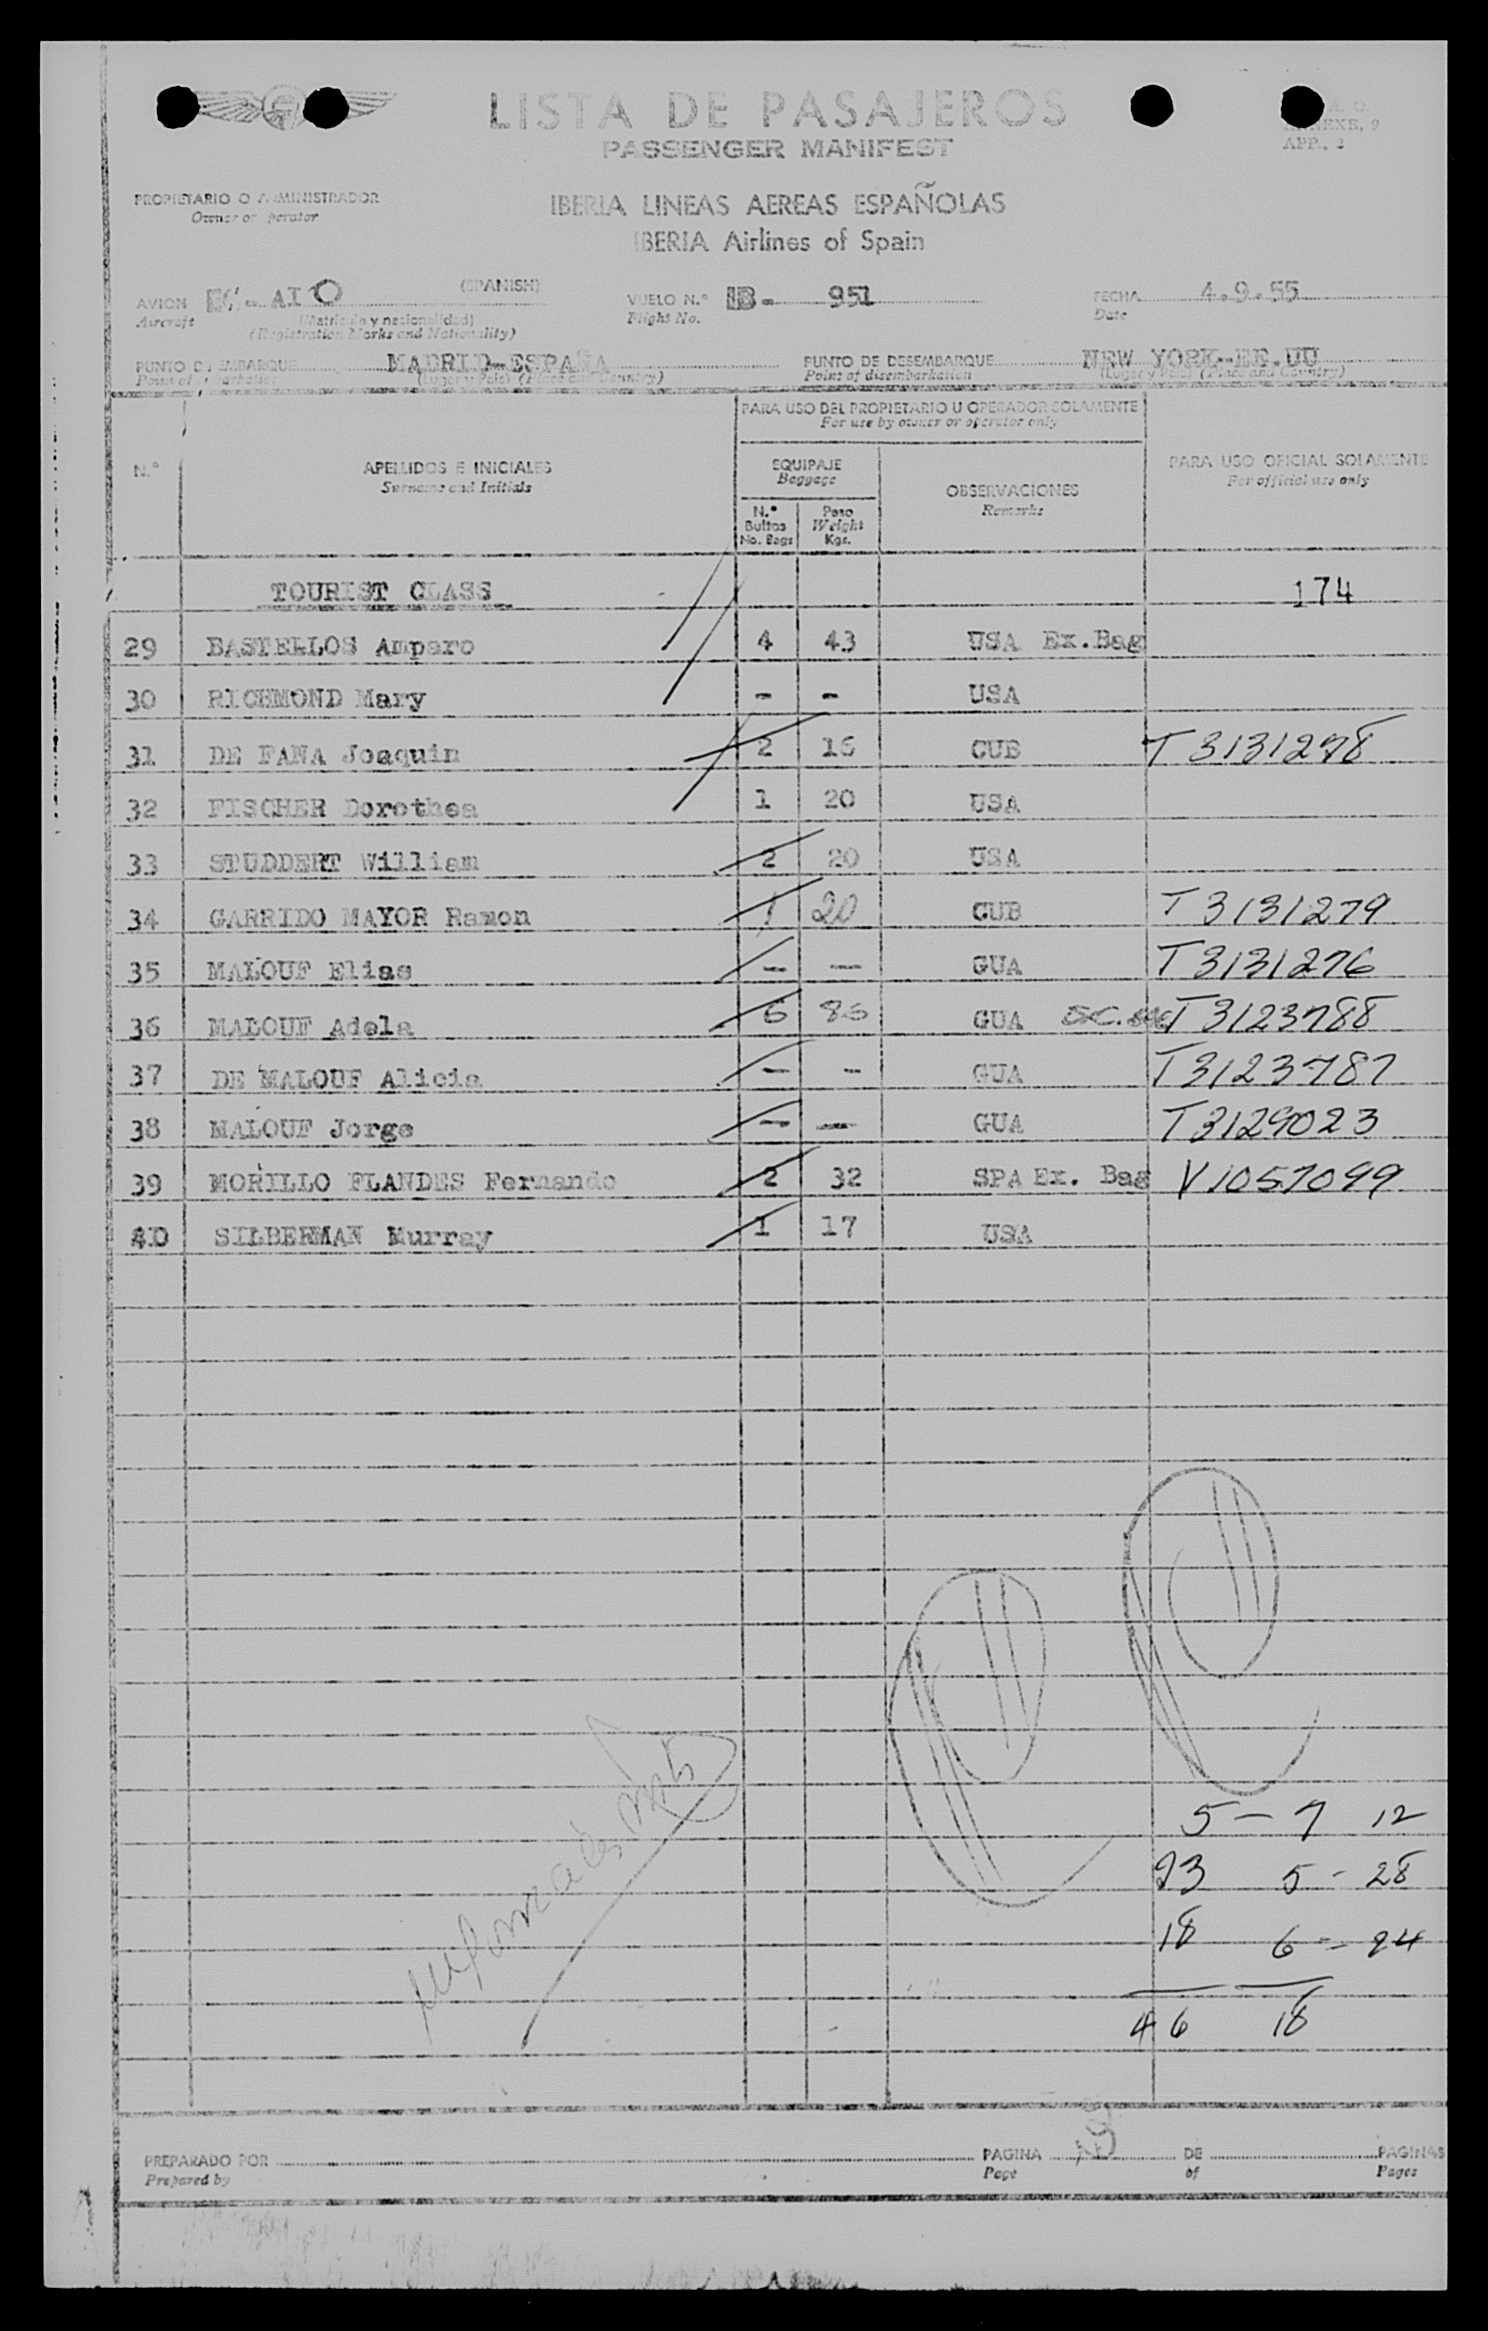 LISTA DE PASAJEROS
PASSENGER MANIFEST
ANNEXE, 9
APP., 2
PROPIETARIO O ADMINISTRADOR
Owner or operator
IBERIA LINEAS AEREAS ESPAÑOLAS
IBERIA Airlines of Spain
AVION EC- AIO (SPANISH) VUELO N.º IB- 951 FECHA 4.9.55
Aircraft (Matrícula y nacionalidad) Flight No. Date
(Registration Marks and Nationality)
PUNTO DE EMBARQUE MADRID-ESPAÑA PUNTO DE DESEMBARQUE NEW YORK-EE.UU
Point of embarkation (Lugar y País) (Place and Country) Point of disembarkation (Lugar y País) (Place and Country)
PARA USO DEL PROPIETARIO U OPERADOR SOLAMENTE
For use by owner or operator only
N.º APELLIDOS E INICIALES EQUIPAJE OBSERVACIONES PARA USO OFICIAL SOLAMENTE
Surname and Initials Baggage Remarks For official use only
N.º Bultos Peso
No. Bags Weight Kgs.
TOURIST CLASS 174
29 BASTELLOS Amparo 4 43 USA Ex.Bag
30 RICHMOND Mary - - USA
31 DE FANA Joaquin 2 16 CUB T3131278
32 FISCHER Dorothea 1 20 USA
33 STUDDERT William 2 20 USA
34 GARRIDO MAYOR Ramon 1 20 CUB T3131279
35 MALOUF Elias - - GUA T3131276
36 MALOUF Adela 6 86 GUA T3123788
37 DE MALOUF Alicia - - GUA T3123787
38 MALOUF Jorge - - GUA T3129023
39 MORILLO FLANDES Fernando 2 32 SPA Ex. Bag V1057099
40 SILBERMAN Murray 1 17 USA
5 - 7 12
23 5 - 28
18 6 - 24
46 18
PREPARADO POR PAGINA DE PAGINAS
Prepared by Page of Pages